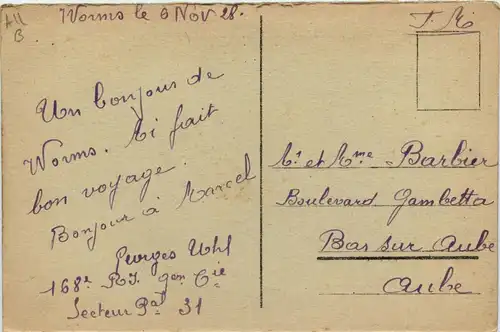 All
B
Worms le 6 Nov 28.
F. M
Un bonjour de
Worms. Ai fait
bon voyage.
Bonjour à Marcel
Georges Uhl
168e RI. 9em Cie
Secteur Pal 31
Mr et Mme Barbier
Boulevard Gambetta
Bar sur Aube
Aube